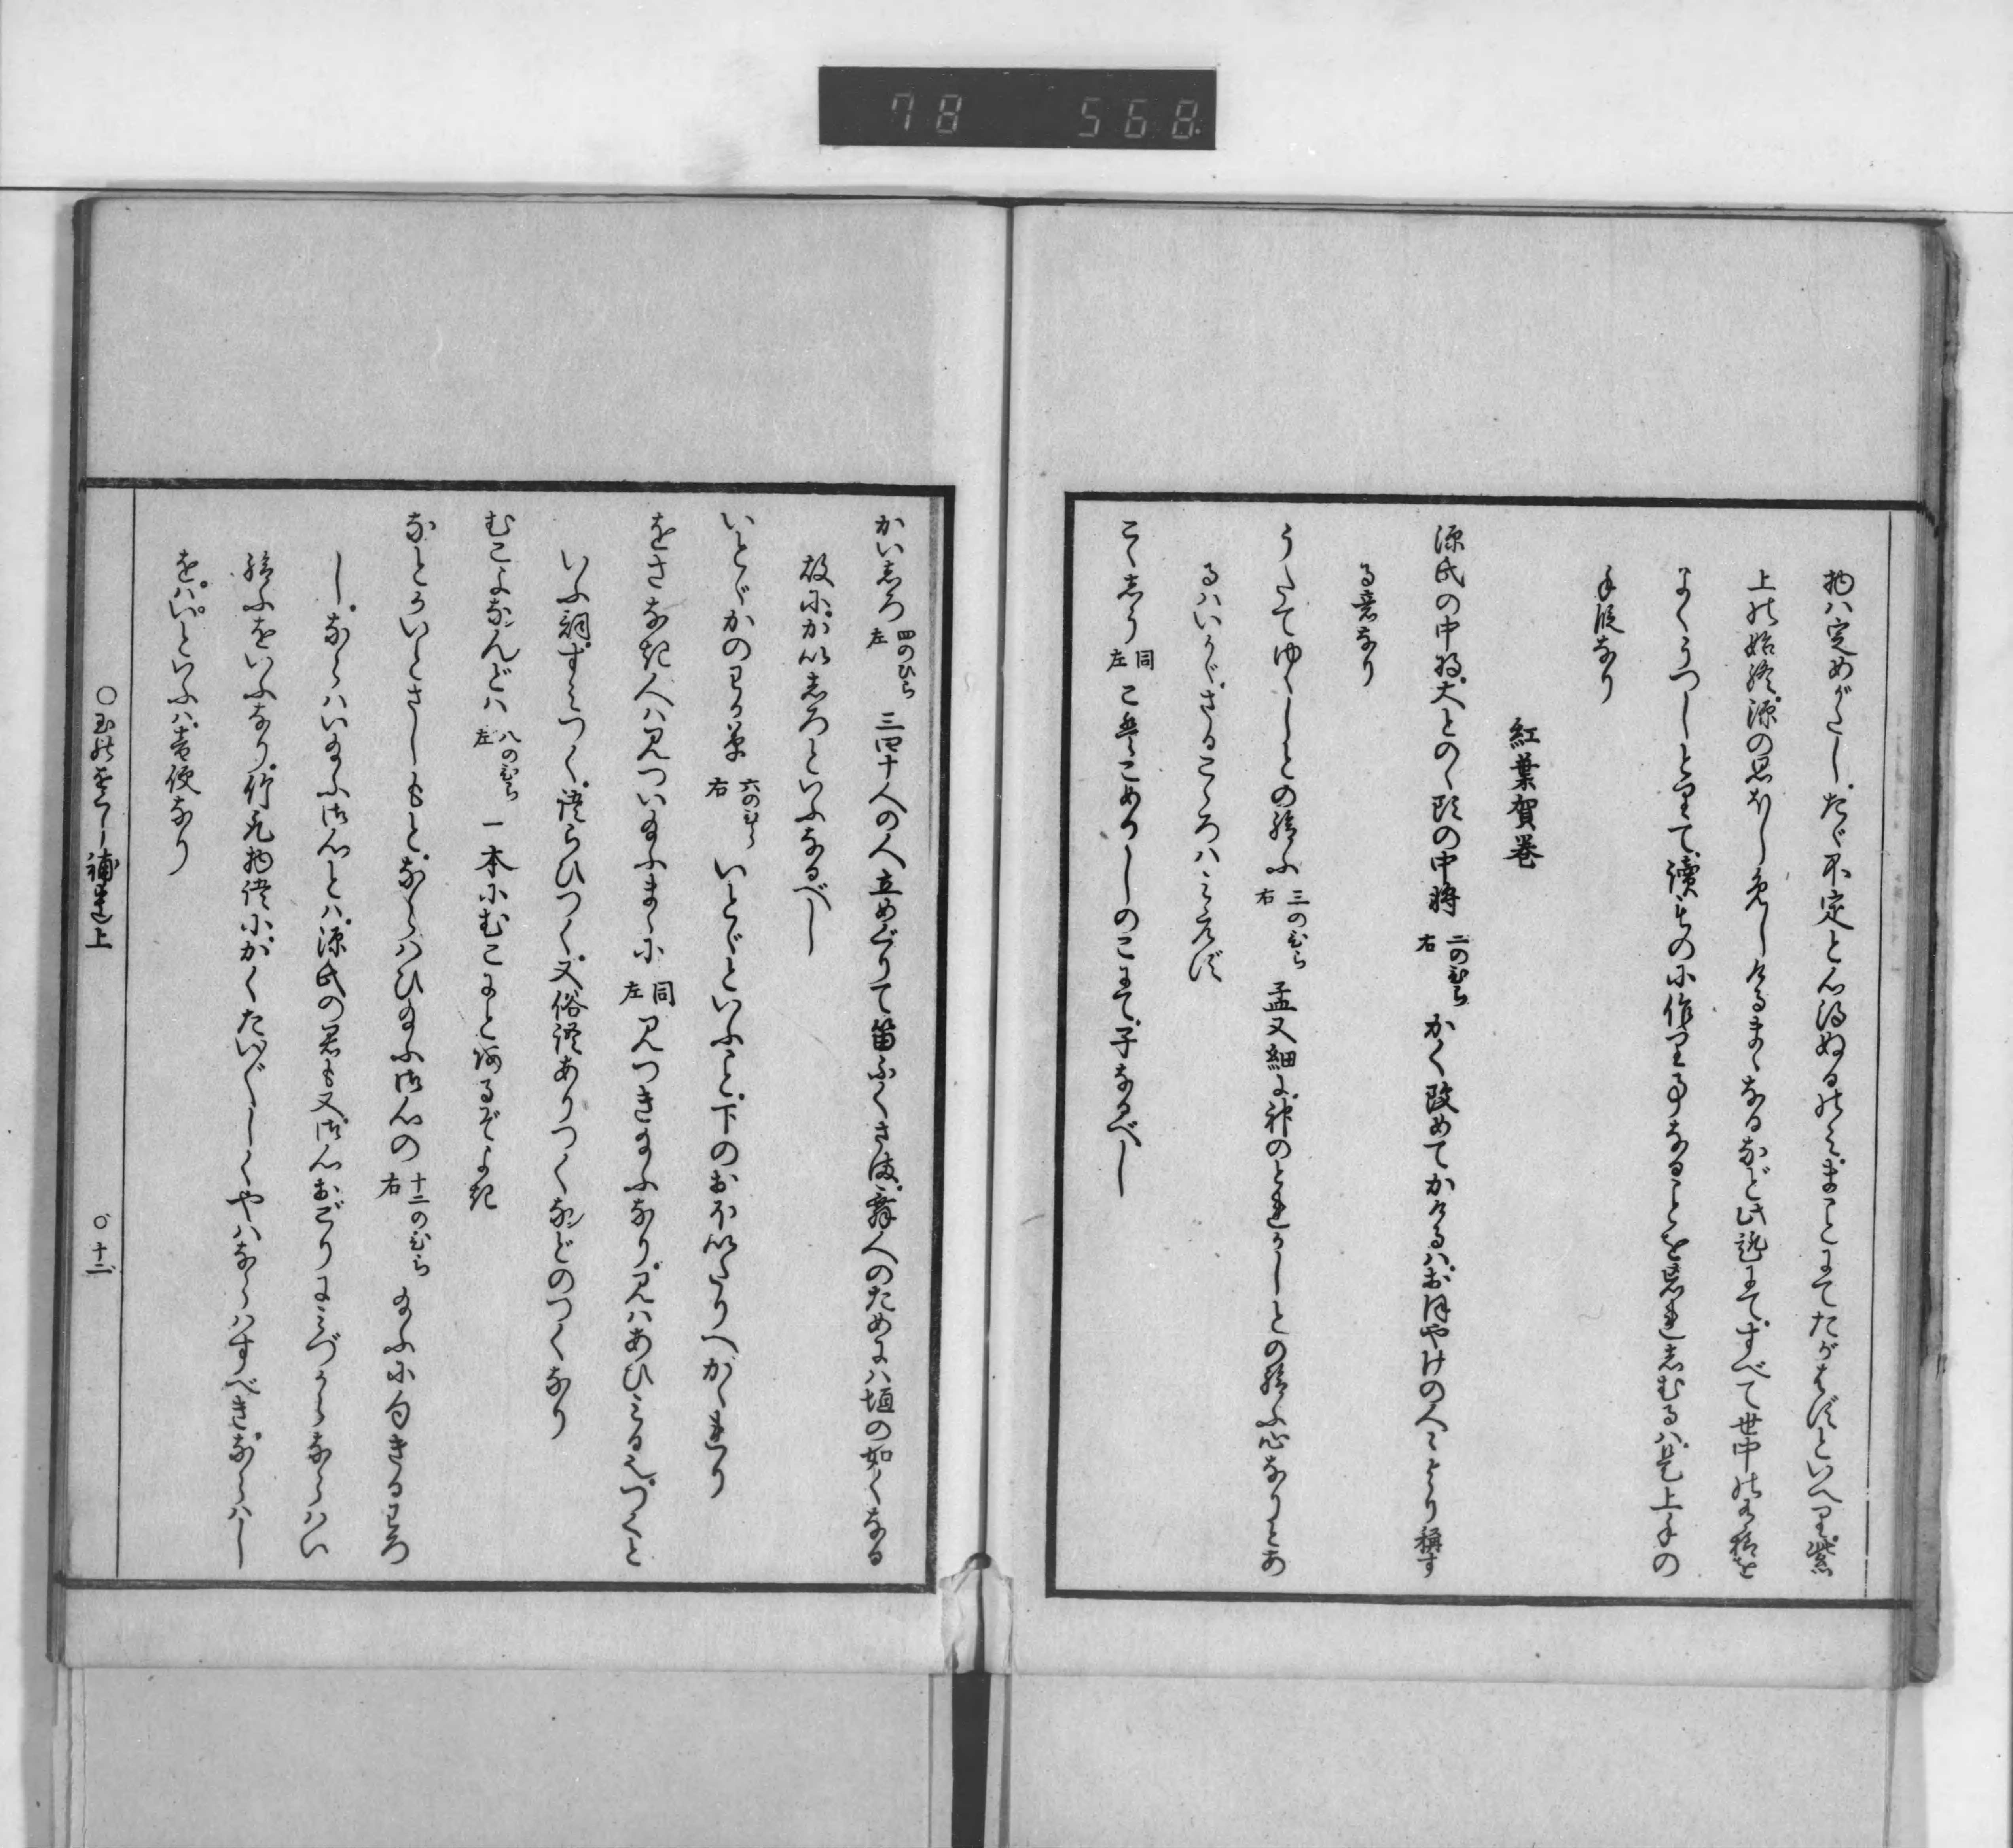 78 568
物ハ定めがたし、たゞ不定と心得ぬるのミ、まことにてたがはずといへり、紫
上の始終、源の思ほし免しけるまゝなるなど、此詞にて、すべて世中の有様を
よくうつしとりて、讀ものに作り事なることを忘れしむるハ、是上手の
手段なり
紅葉賀巻
源氏の中将、大とのゝ頭の中将 二のひら右 かく改めてかけるハ、おほやけの人々より稱す
る意なり
うたてゆゝしとの給ふ 三のひら右 孟又細に、神のとれかしとの給ふ心なりとあ
るハいかゞ、さるこゝろハミえず
こゝしう 同左 こ兵こめかしのこにて、子なるべし
かいしろ 四のひら左 三四十人の人立めぐりて笛ふくさま、舞人のためにハ垣の如くなる
故に、かいしろといふなるべし
いとゞかのわか草 六のひら右 いとゞといふこと、下のおほいたりへかゝれり
をさなき人ハ見ついたまふまゝに 同左 見つきたまふなり、見ハあひミる也、つくと
いふ詞、すミつく、語らひつく、又俗語ありつくなどのつくなり
むこになんどハ 八のひら左 一本にむこにとあるぞよき
なとかいとさしもと、ならハひたまふ御心の 十二のひら右 たまふに句きるわろ
し、ならハいたまふ御心とハ、源氏の君も又、御心おごりにミづからならハい
給ふをいふなり、竹取物語に、かくたいだいしくやハならハすべき、ならハし
を、ハいといふハ、音便なり
○玉のをぐし補遺上 ○十二